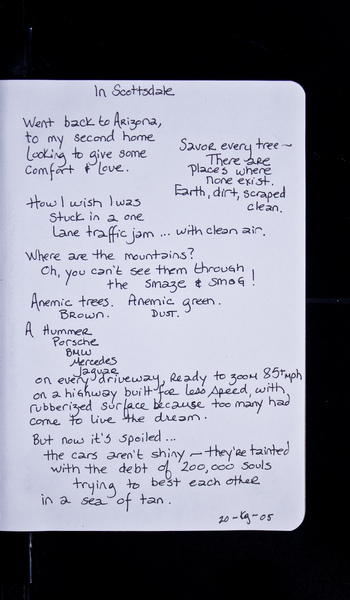 In Scottsdale
Went back to Arizona,
to my second home
Looking to give some
Comfort & Love.
Savor every tree ~
There are
places where
none exist.
Earth, dirt, scraped
clean.
How I wish I was
Stuck in a one
Lane traffic jam ... with clean air.
Where are the mountains?
Oh, you can't see them through
the smaze & smog!
Anemic trees. Anemic green.
Brown. Dust.
A Hummer
Porsche
BMW
Mercedes
Jaguar
on every driveway, Ready to zoom 85+mph
on a highway built for less speed, with
rubberized surface because too many had
come to live the dream.
But now it's spoiled ...
the cars aren't shiny — they're tainted
with the debt of 200,000 souls
trying to best each other
in a sea of tan.
20-kg-05